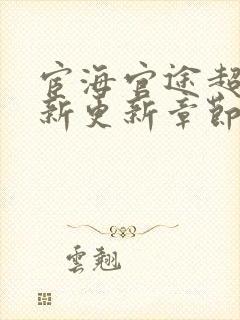 宦海官途超
新更新章節
雲翹